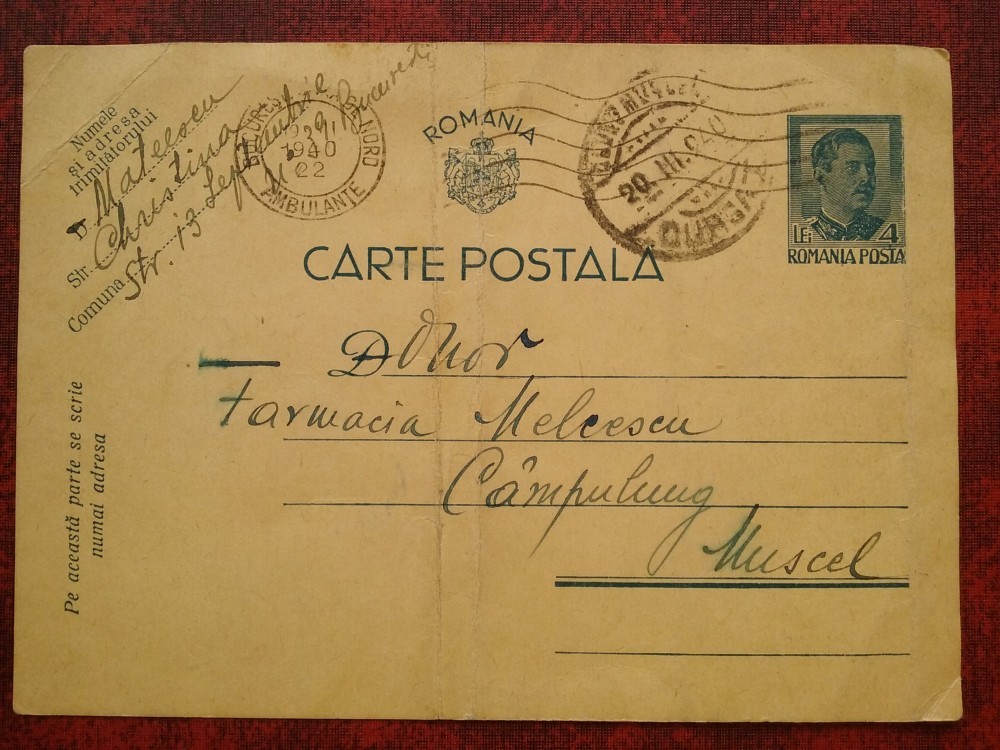 Numele
și adresa
trimițătorului
D Matelescu
Str. Christina
Comuna Str. 13 Septembrie
București
GARA DE NORD
1940
22
AMBULANTE
ROMANIA
20 III. 940
DURSA
LEI 4
ROMANIA POSTA
CARTE POSTALA
D Onor
Farmacia Melcescu
Câmpulung
Muscel
Pe această parte se scrie
numai adresa